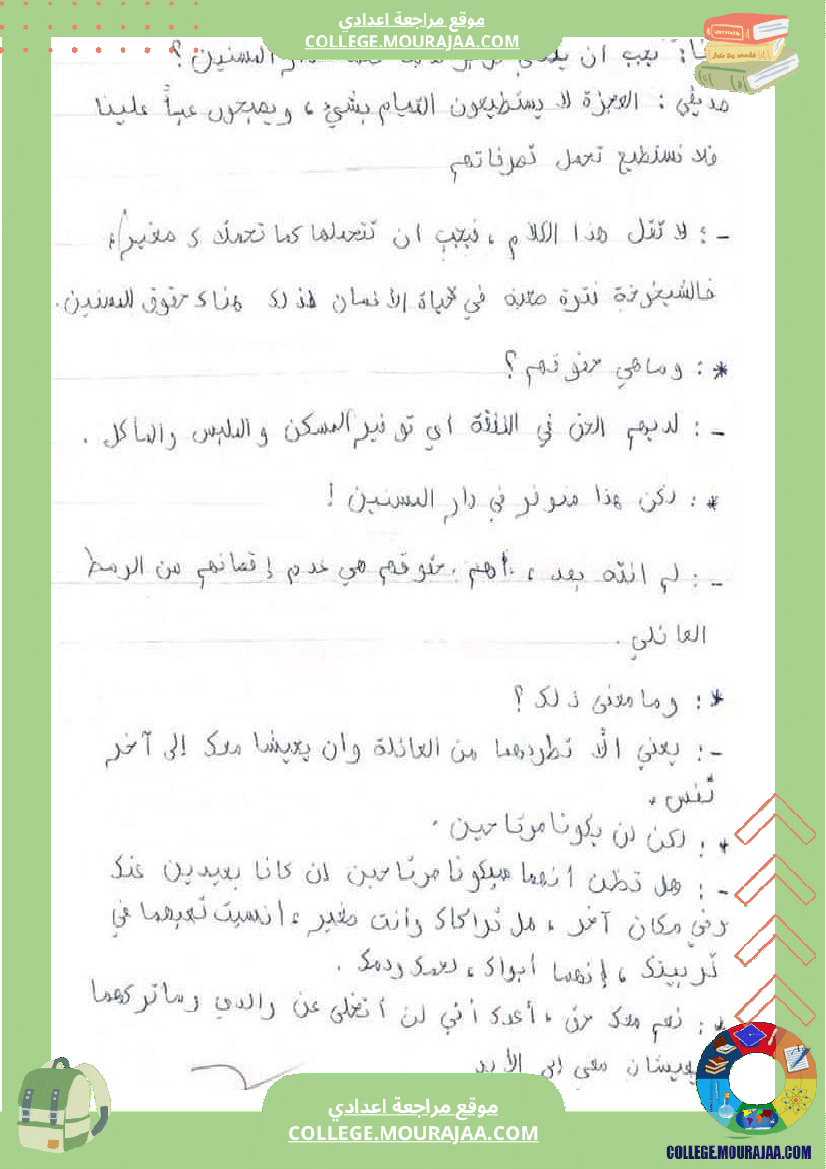 موقع مراجعة اعدادي
COLLEGE.MOURAJAA.COM
يجب ان المسنين؟
صديقي: العجزة لا يستطيعون القيام بشيء، ويصبحون عبأً علينا
فلا نستطيع تحمل تصرفاتهم
-: لا تقل هذا الكلام، فيجب ان تتحملها كما تحملاك صغيراً،
فالشيخوخة فترة صعبة في حياة الأنسان لذلك هناك حقوق للمسنين.
*: وماهي حقوقهم؟
-: لديهم الحق في النفقة اي توفير المسكن والملبس والمأكل.
*: لكن هذا متوفر في دار المسنين!
-: لم انته بعد، أهم حقوقهم هي عدم إقصائهم من الوسط
العائلي.
*: وما معنى ذلك؟
-: يعني الّا تطردهما من العائلة وان يعيشا معك إلى آخر
نفس.
*: لكن لن يكونا مرتاحين.
-: هل تظن انهما سيكونا مرتاحين ان كانا بعيدين عنك
وفي مكان آخر، هل تراكاك وانت صغير، انسيت تعبهما في
تربيتك، إنهما أبواك، لحمك ودمك.
*: نعم معك حق، أعدك أني لن أتخلى عن والدي وسأتركهما
يعيشان معي إلى الأبد
موقع مراجعة اعدادي
COLLEGE.MOURAJAA.COM
COLLEGE.MOURAJAA.COM